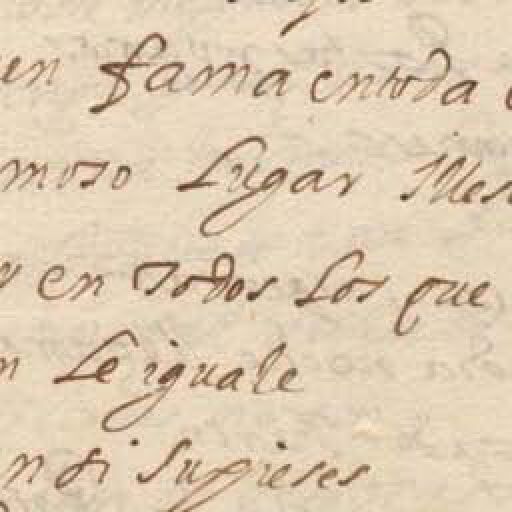 en fama en toda
moso Lugar Illes
en Todos Los que
n Le iguale
n di supieses